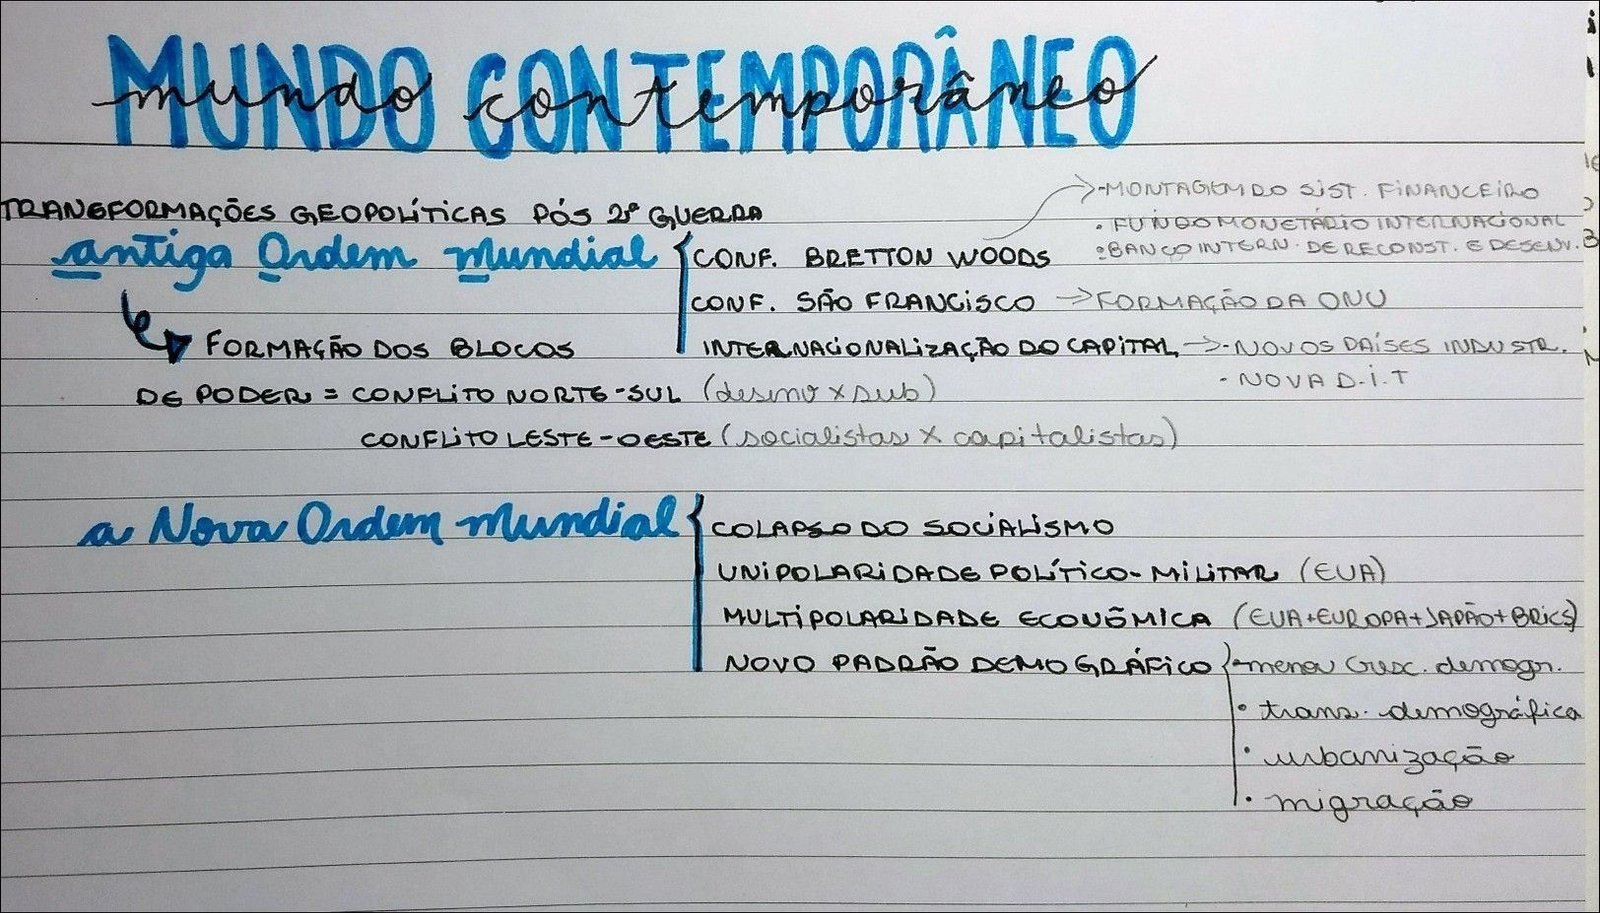 MUNDO CONTEMPORÂNEO
mundo contemporâneo
TRANSFORMAÇÕES GEOPOLÍTICAS PÓS 2ª GUERRA
antiga Ordem Mundial
CONF. BRETTON WOODS
- MONTAGEM DO SIST. FINANCEIRO
• FUNDO MONETÁRIO INTERNACIONAL
• BANCO INTERN. DE RECONST. E DESENV.
CONF. SÃO FRANCISCO → FORMAÇÃO DA ONU
INTERNACIONALIZAÇÃO DO CAPITAL → - NOVOS PAÍSES INDUSTR.
- NOVA D.I.T
FORMAÇÃO DOS BLOCOS
DE PODER = CONFLITO NORTE-SUL (desenv x sub)
CONFLITO LESTE-OESTE (socialistas X capitalistas)
a Nova Ordem Mundial
COLAPSO DO SOCIALISMO
UNIPOLARIDADE POLÍTICO-MILITAR (EUA)
MULTIPOLARIDADE ECONÔMICA (EUA+EUROPA+JAPÃO+BRICS)
NOVO PADRÃO DEMOGRÁFICO
• menor cresc. demogr.
• trans. demográfica
• urbanização
• migração